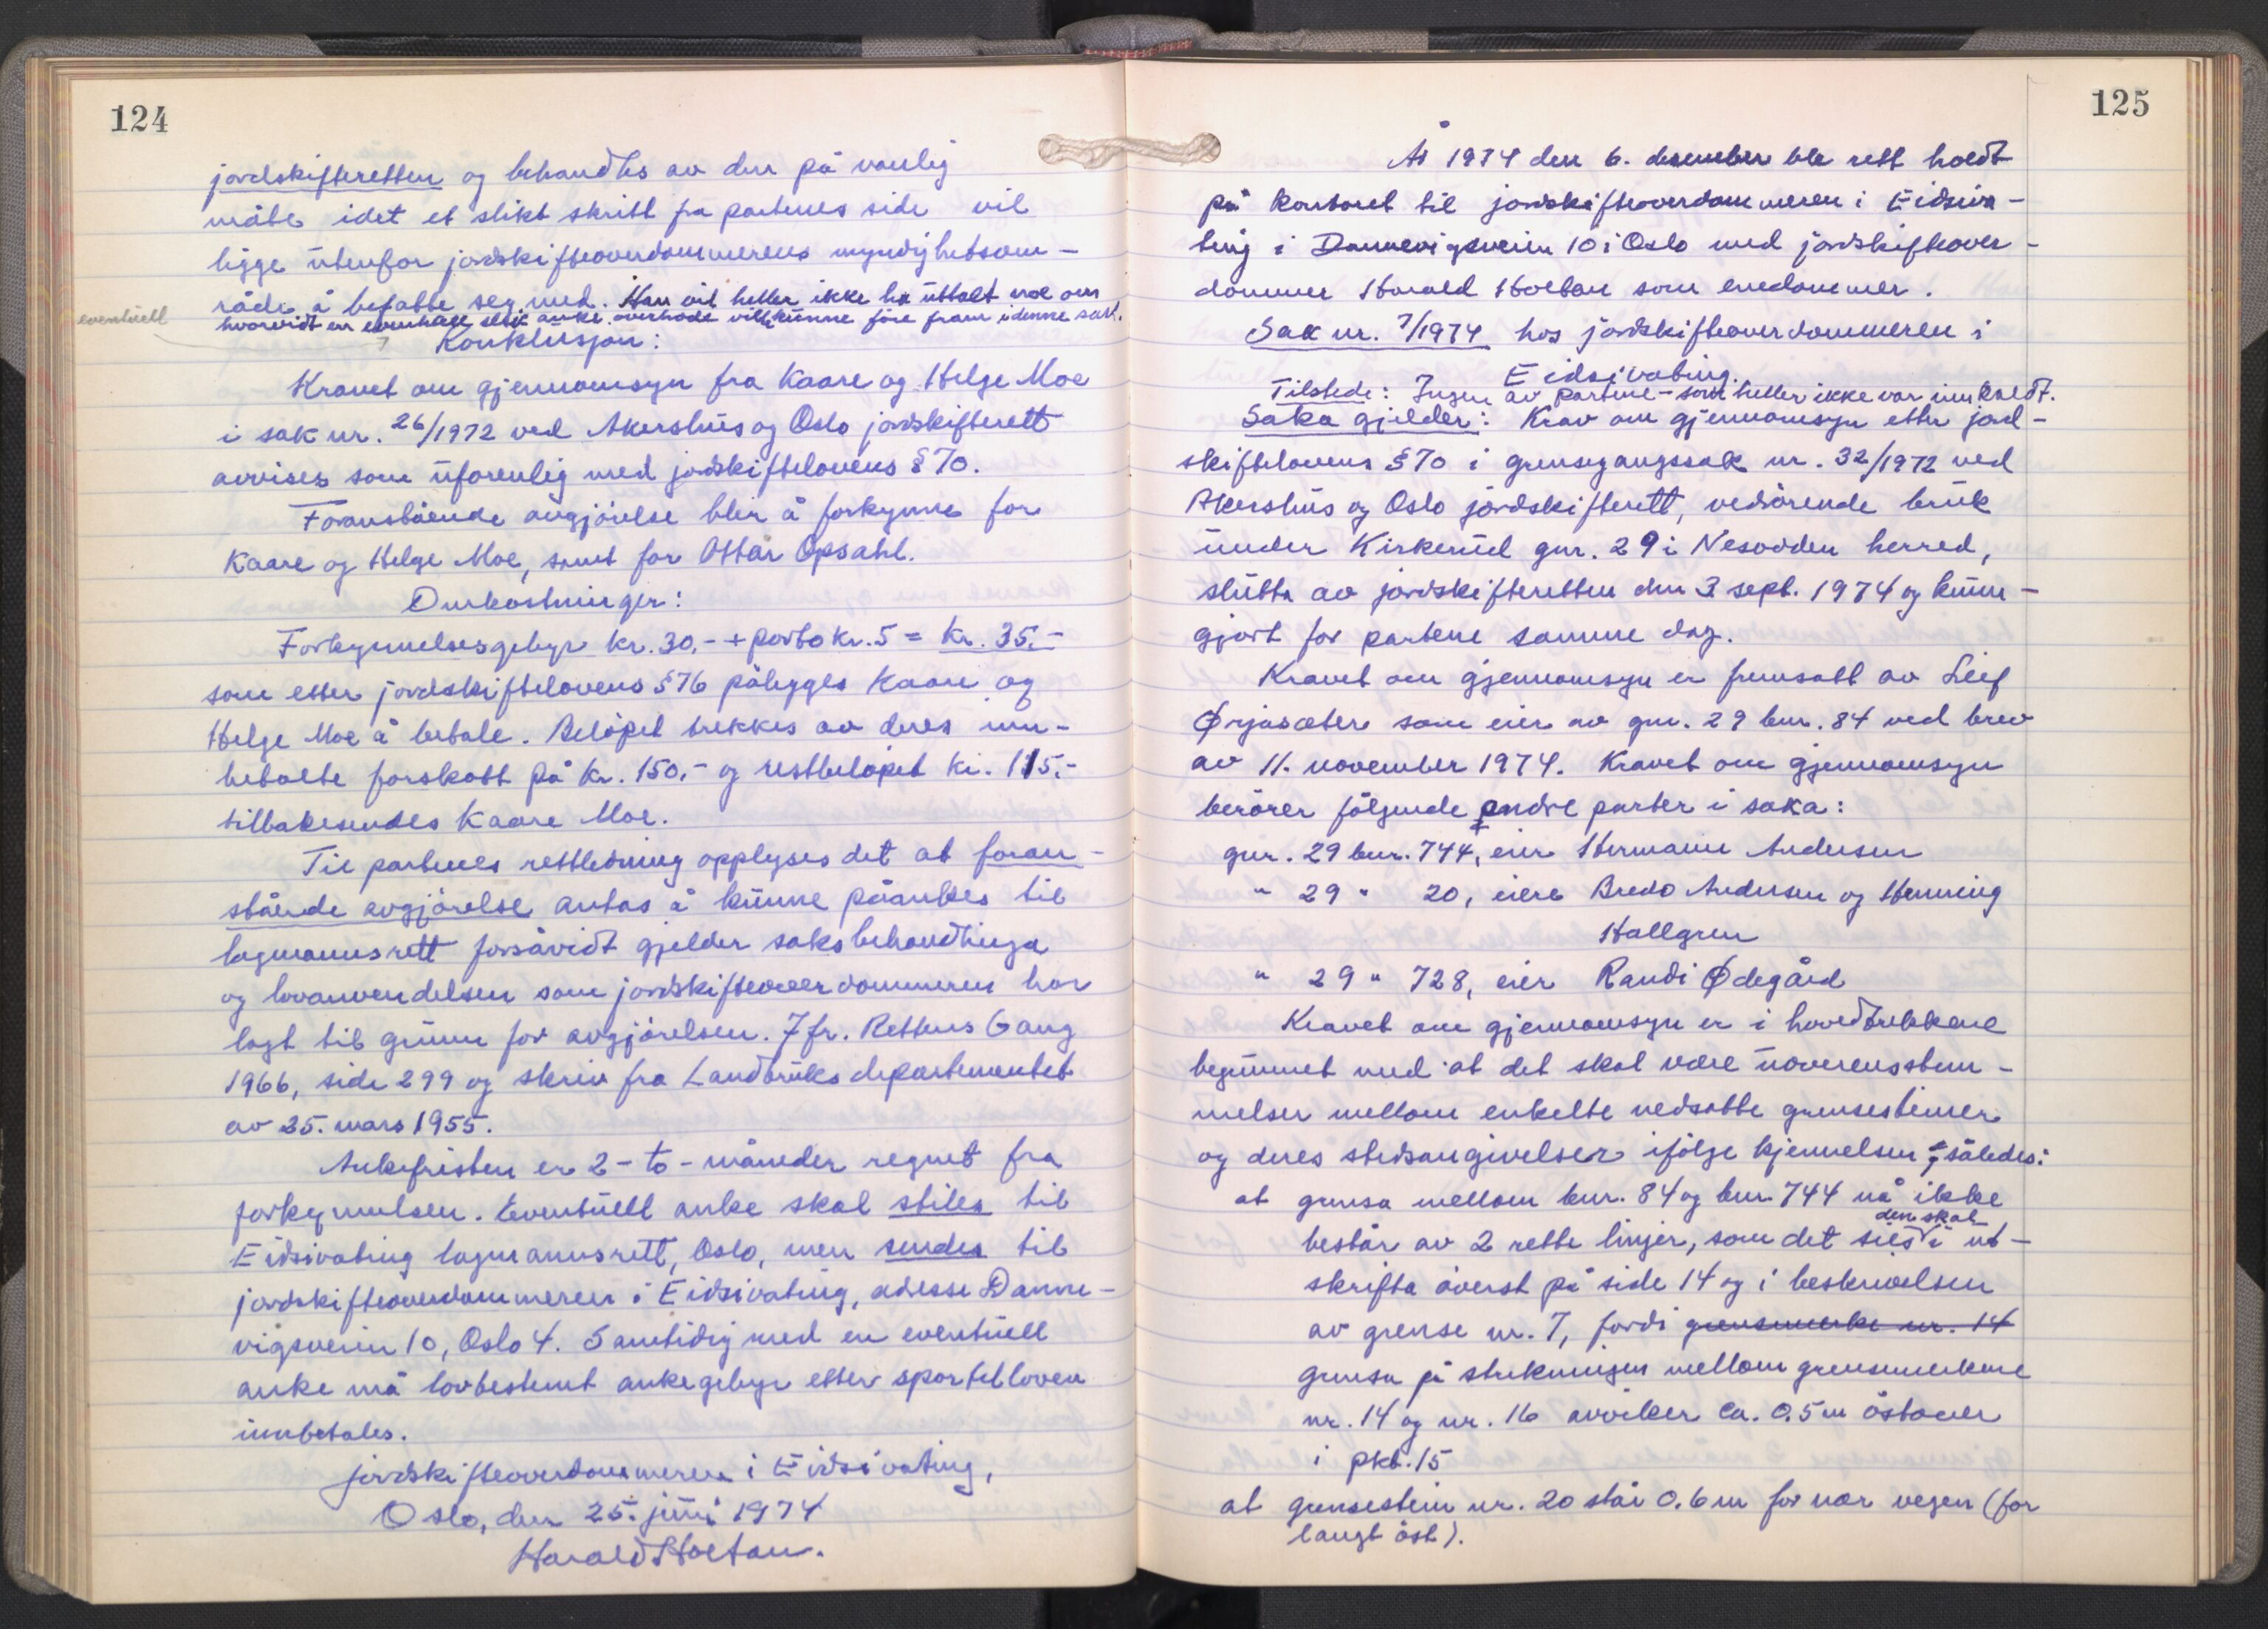 124
jordskifteretten og behandles av den på vanlig
måte idet et slikt skritt fra partenes side vil
ligge utenfor jordskifteoverdommerens myndighetsom-
råde å befatte seg med. Han vil heller ikke ha uttalt noe om
eventuell
hvorvidt en eventuell slik anke overhode ville kunne føre fram i denne sak.
Konklusjon:
Kravet om gjennomsyn fra Kaare og Helge Moe
i sak nr. 26/1972 ved Akershus og Oslo jordskifterett
avvises som uforenlig med jordskiftelovens § 70.
Foranstående avgjörelse blir å forkynne for
Kaare og Helge Moe, samt for Ottar Opsahl.
Omkostninger:
Forkynnelsesgebyr kr. 30,- + porto kr. 5 = kr. 35.-
som etter jordskiftelovens § 76 pålegges Kaare og
Helge Moe å betale. Belöpet trekkes av deres inn-
betalte forskott på kr. 150,- og restbelöpet kr. 115,-
tilbakesendes Kaare Moe.
Til partenes rettledning opplyses det at foran-
stående avgjörelse antas å kunne påankes til
lagmannsrett forsåvidt gjelder saksbehandlinga
og lovanvendelsen som jordskifteoverdommeren har
lagt til grunn for avgjörelsen. Jfr. Rettens Gang
1966, side 299 og skriv fra Landbruksdepartementet
av 25. mars 1955.
Ankefristen er 2 - to - måneder regnet fra
forkynnelsen. Eventuell anke skal stiles til
Eidsivating lagmannsrett, Oslo, men sendes til
jordskifteoverdommeren i Eidsivating, adresse Danne-
vigsveien 10, Oslo 4. Samtidig med en eventuell
anke må lovbestemt ankegebyr etter sportelloven
innbetales.
Jordskifteoverdommeren i Eidsivating,
Oslo, den 25. juni 1974
Harald Holtan.
125
År 1974 den 6. desember ble rett holdt
på kontoret til jordskifteoverdommeren i Eidsiva-
ting i Dannevigsveien 10 i Oslo med jordskifteover-
dommer Harald Holtan som enedommer.
Sak nr. 7/1974 hos jordskifteoverdommeren i
Eidsivating.
Tilstede: Ingen av partene - som heller ikke var innkaldt.
Saka gjelder: Krav om gjennomsyn etter jord-
skiftelovens § 70 i grensegangssak nr. 32/1972 ved
Akershus og Oslo jordskifterett, vedrörende bruk
under Kirkerud gnr. 29 i Nesodden herred,
slutta av jordskifteretten den 3 sept. 1974 og kunn-
gjort for partene samme dag.
Kravet om gjennomsyn er fremsatt av Leif
Ørjasæter som eier av gnr. 29 bnr. 84 ved brev
av 11. november 1974. Kravet om gjennomsyn
berörer fölgende andre parter i saka:
gnr. 29 bnr. 744, eier Hermann Andersen
" 29 " 20, eiere Bredo Andersen og Henning
Hallgren
" 29 " 728, eier Randi Ødegård
Kravet om gjennomsyn er i hovedtrekkene
begrunnet med at det skal være uoverensstem-
melser mellom enkelte nedsatte grensesteiner
og deres stedsangivelser ifölge kjennelsen, således:
at grensa mellom bnr. 84 og bnr. 744 nå ikke
består av 2 rette linjer, som det sies den skal i ut-
skrifta överst på side 14 og i beskrivelsen
av grense nr. 7, fordi grensemerke nr. 14
grensa på strekningen mellom grensemerkene
nr. 14 og nr. 16 avviker ca. 0.5 m östover
i pkt. 15
at grensestein nr. 20 står 0.6 m for nær vegen (for
langt öst).